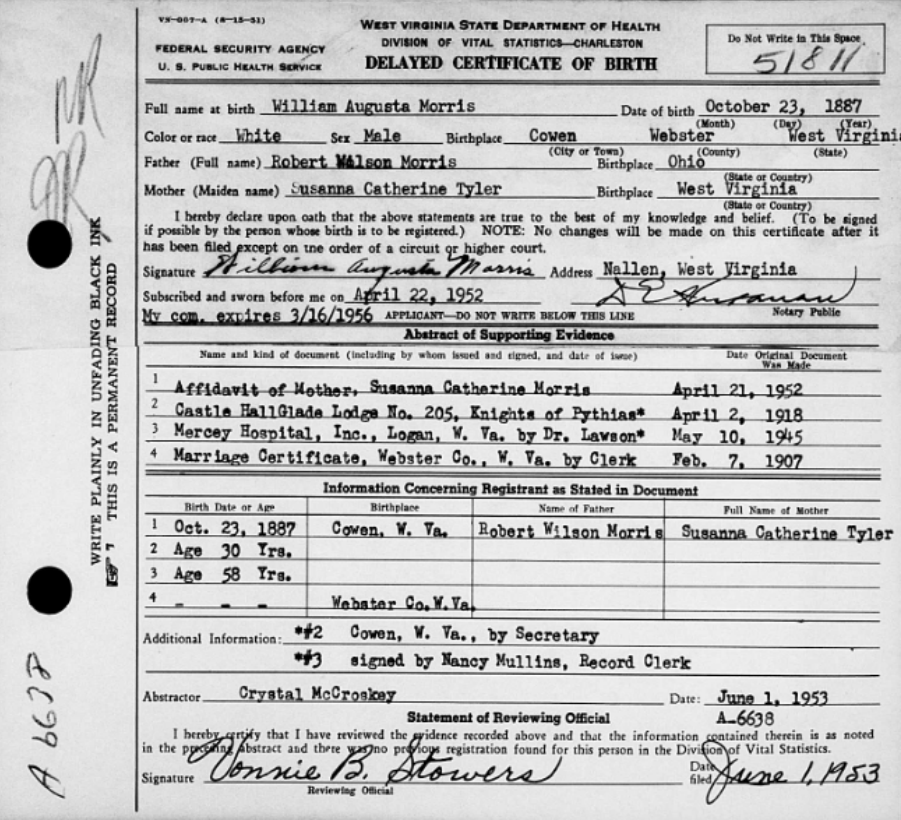 VS-007-A (8-15-51)
FEDERAL SECURITY AGENCY
U. S. PUBLIC HEALTH SERVICE
WEST VIRGINIA STATE DEPARTMENT OF HEALTH
DIVISION OF VITAL STATISTICS—CHARLESTON
DELAYED CERTIFICATE OF BIRTH
Do Not Write in This Space
51811
Full name at birth William Augusta Morris Date of birth October 23, 1887
(Month) (Day) (Year)
Color or race White Sex Male Birthplace Cowen Webster West Virginia
(City or Town) (County) (State)
Father (Full name) Robert Wilson Morris Birthplace Ohio
(State or Country)
Mother (Maiden name) Susanna Catherine Tyler Birthplace West Virginia
(State or Country)
I hereby declare upon oath that the above statements are true to the best of my knowledge and belief. (To be signed
if possible by the person whose birth is to be registered.) NOTE: No changes will be made on this certificate after it
has been filed except on the order of a circuit or higher court.
Signature William Augusta Morris Address Nallen, West Virginia
Subscribed and sworn before me on April 22, 1952
Notary Public
My com. expires 3/16/1956 APPLICANT—DO NOT WRITE BELOW THIS LINE
Abstract of Supporting Evidence
Name and kind of document (including by whom issued and signed, and date of issue) Date Original Document
Was Made
1 Affidavit of Mother, Susanna Catherine Morris April 21, 1952
2 Castle HallGlade Lodge No. 205, Knights of Pythias* April 2, 1918
3 Mercey Hospital, Inc., Logan, W. Va. by Dr. Lawson* May 10, 1945
4 Marriage Certificate, Webster Co., W. Va. by Clerk Feb. 7, 1907
Information Concerning Registrant as Stated in Document
Birth Date or Age Birthplace Name of Father Full Name of Mother
1 Oct. 23, 1887 Cowen, W. Va. Robert Wilson Morris Susanna Catherine Tyler
2 Age 30 Yrs.
3 Age 58 Yrs.
4 - - - Webster Co.W.Va.
Additional Information: *#2 Cowen, W. Va., by Secretary
*#3 signed by Nancy Mullins, Record Clerk
Abstractor Crystal McCroskey Date: June 1, 1953
Statement of Reviewing Official A-6638
I hereby certify that I have reviewed the evidence recorded above and that the information contained therein is as noted
in the preceding abstract and there was no previous registration found for this person in the Division of Vital Statistics.
Signature Vonnie B. Stowers Date filed June 1, 1953
Reviewing Official
WRITE PLAINLY IN UNFADING BLACK INK
THIS IS A PERMANENT RECORD
A 6638